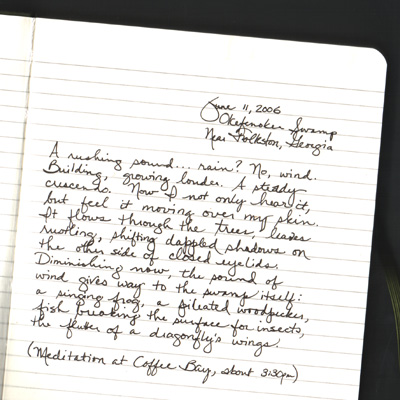 June 11, 2006
Okefenokee Swamp
Near Folkston, Georgia
A rushing sound... rain? No, wind.
Building, growing louder. A steady
crescendo. Now I not only hear it,
but feel it moving over my skin.
It flows through the trees, leaves
rustling, shifting dappled shadows on
the other side of closed eyelids.
Diminishing now, the sound of
wind gives way to the swamp itself:
a singing frog, a pileated woodpecker,
fish breaking the surface for insects,
the flutter of a dragonfly's wings.
(Meditation at Coffee Bay, about 3:30pm)